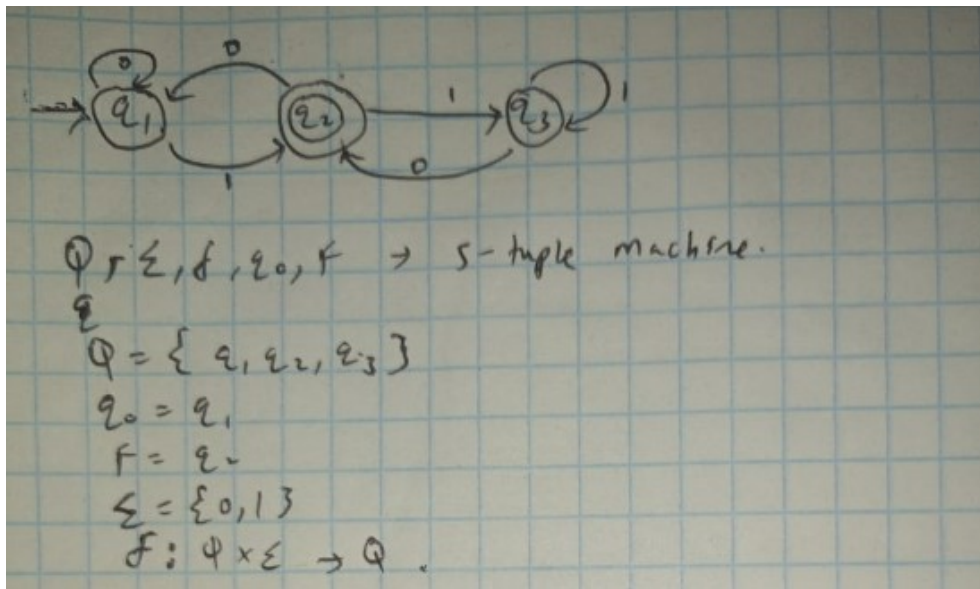 0 0 1 1
q1 q2 q3
1 0
Q, Σ, δ, q0, F → 5-tuple machine.
q
Q = { q1, q2, q3 }
q0 = q1
F = q2
Σ = {0,1}
δ: Q × Σ → Q.